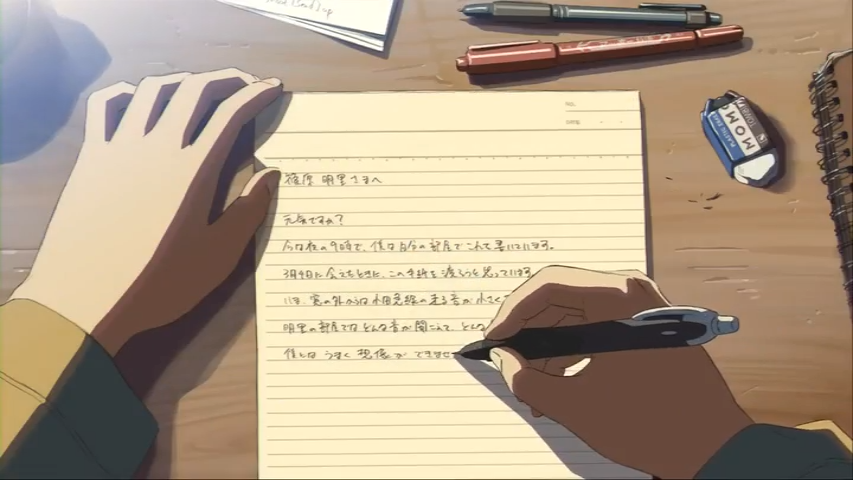 No.
DATE
篠原 明里さまへ
元気ですか?
今は夜の9時で、僕は自分の部屋でこれを書いています。
3月4日に会えたときに、この手紙を渡そうと思っています。
いま、窓の外からは小田急線の走る音が小さく
明里の部屋ではどんな音が聞こえて、どんな
僕には うまく 想像が できませ
MOMO
PLASTIC